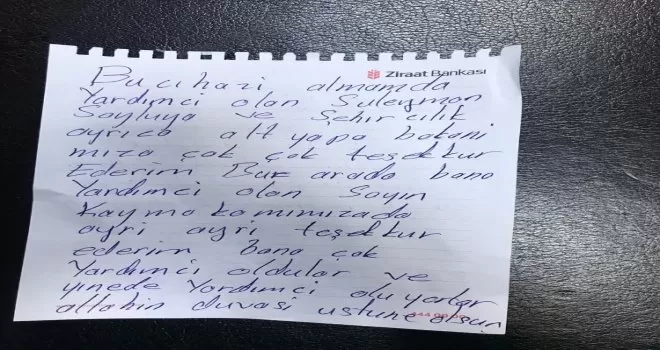 Ziraat Bankası
Bu cihazi almamda
Yardımci olan Süleyman
Soyluya ve Şehircilik
ayrıca alt yapa bakani
mıza çok çok teşekkur
Ederim Bur arada bana
Yardımci olan Sayın
Kaymakamımızada
ayri ayri teşekkur
ederim bana çok
Yardımci oldular ve
yinede Yardımci oluyorlar
allahin duvasi ustune olsun
444 00 00